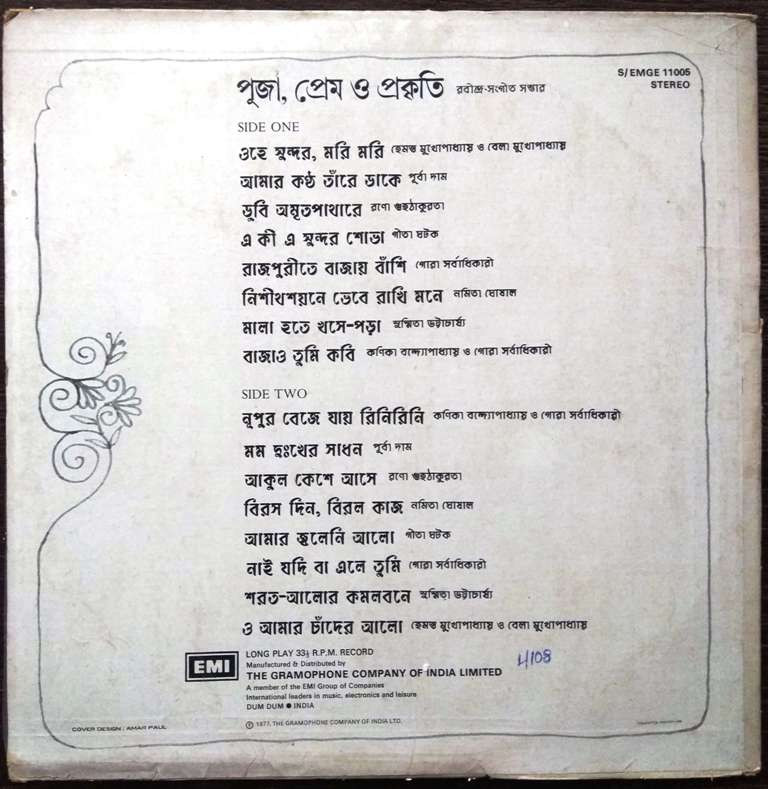 পূজা, প্রেম ও প্রকৃতি রবীন্দ্র-সংগীত সম্ভার
S/EMGE 11005
STEREO
SIDE ONE
ওহে সুন্দর, মরি মরি হেমন্ত মুখোপাধ্যায় ও বেলা মুখোপাধ্যায়
আমার কণ্ঠ তাঁরে ডাকে পূর্বা দাম
ডুবি অমৃতপাথারে রণো গুহঠাকুরতা
এ কী এ সুন্দর শোভা গীতা ঘটক
রাজপুরীতে বাজায় বাঁশি গোরা সর্বাধিকারী
নিশীথশয়নে ভেবে রাখি মনে নমিতা ঘোষাল
মালা হতে খসে-পড়া সুস্মিতা ভট্টাচার্য্য
বাজাও তুমি কবি কণিকা বন্দ্যোপাধ্যায় ও গোরা সর্বাধিকারী
SIDE TWO
নূপুর বেজে যায় রিনিরিনি কণিকা বন্দ্যোপাধ্যায় ও গোরা সর্বাধিকারী
মম দুঃখের সাধন পূর্বা দাম
আকুল কেশে আসে রণো গুহঠাকুরতা
বিরস দিন, বিরল কাজ নমিতা ঘোষাল
আমার জ্বলেনি আলো গীতা ঘটক
নাই যদি বা এলে তুমি গোরা সর্বাধিকারী
শরত-আলোর কমলবনে সুস্মিতা ভট্টাচার্য্য
ও আমার চাঁদের আলো হেমন্ত মুখোপাধ্যায় ও বেলা মুখোপাধ্যায়
EMI
LONG PLAY 33⅓ R.P.M. RECORD
Manufactured & Distributed by
THE GRAMOPHONE COMPANY OF INDIA LIMITED
A member of the EMI Group of Companies
International leaders in music, electronics and leisure
DUM DUM ● INDIA
4108
COVER DESIGN / AMAR PAUL
Ⓟ 1977, THE GRAMOPHONE COMPANY OF INDIA LTD.